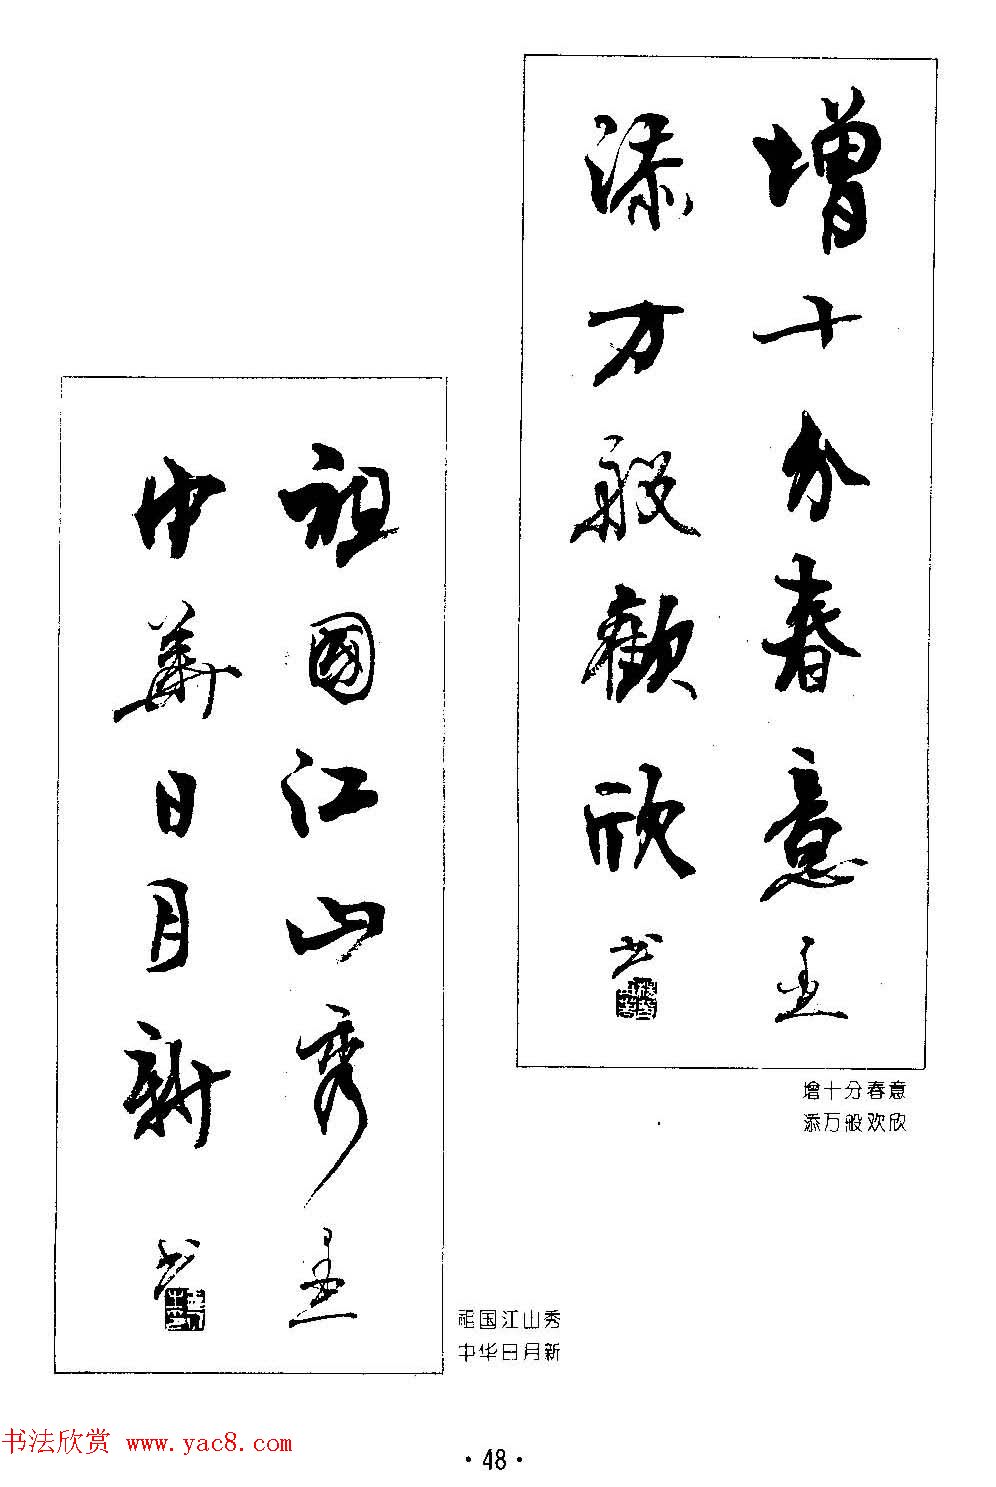 增十分春意
添万般歡欣
书
增十分春意
添万般欢欣
祖國江山秀
中華日月新
书
祖国江山秀
中华日月新
书法欣赏 www.yac8.com
·48·